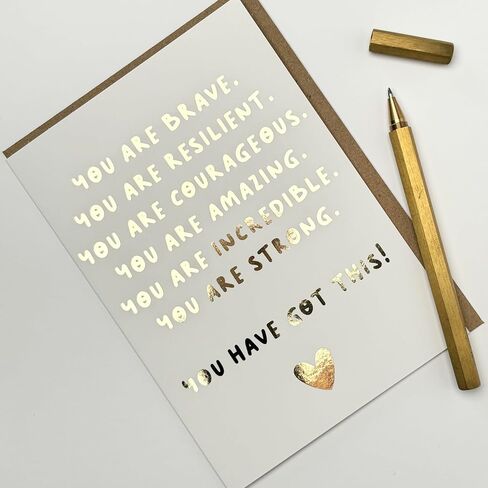 YOU ARE BRAVE.
YOU ARE RESILIENT.
YOU ARE COURAGEOUS.
YOU ARE AMAZING.
YOU ARE INCREDIBLE.
YOU ARE STRONG.
YOU HAVE GOT THIS!